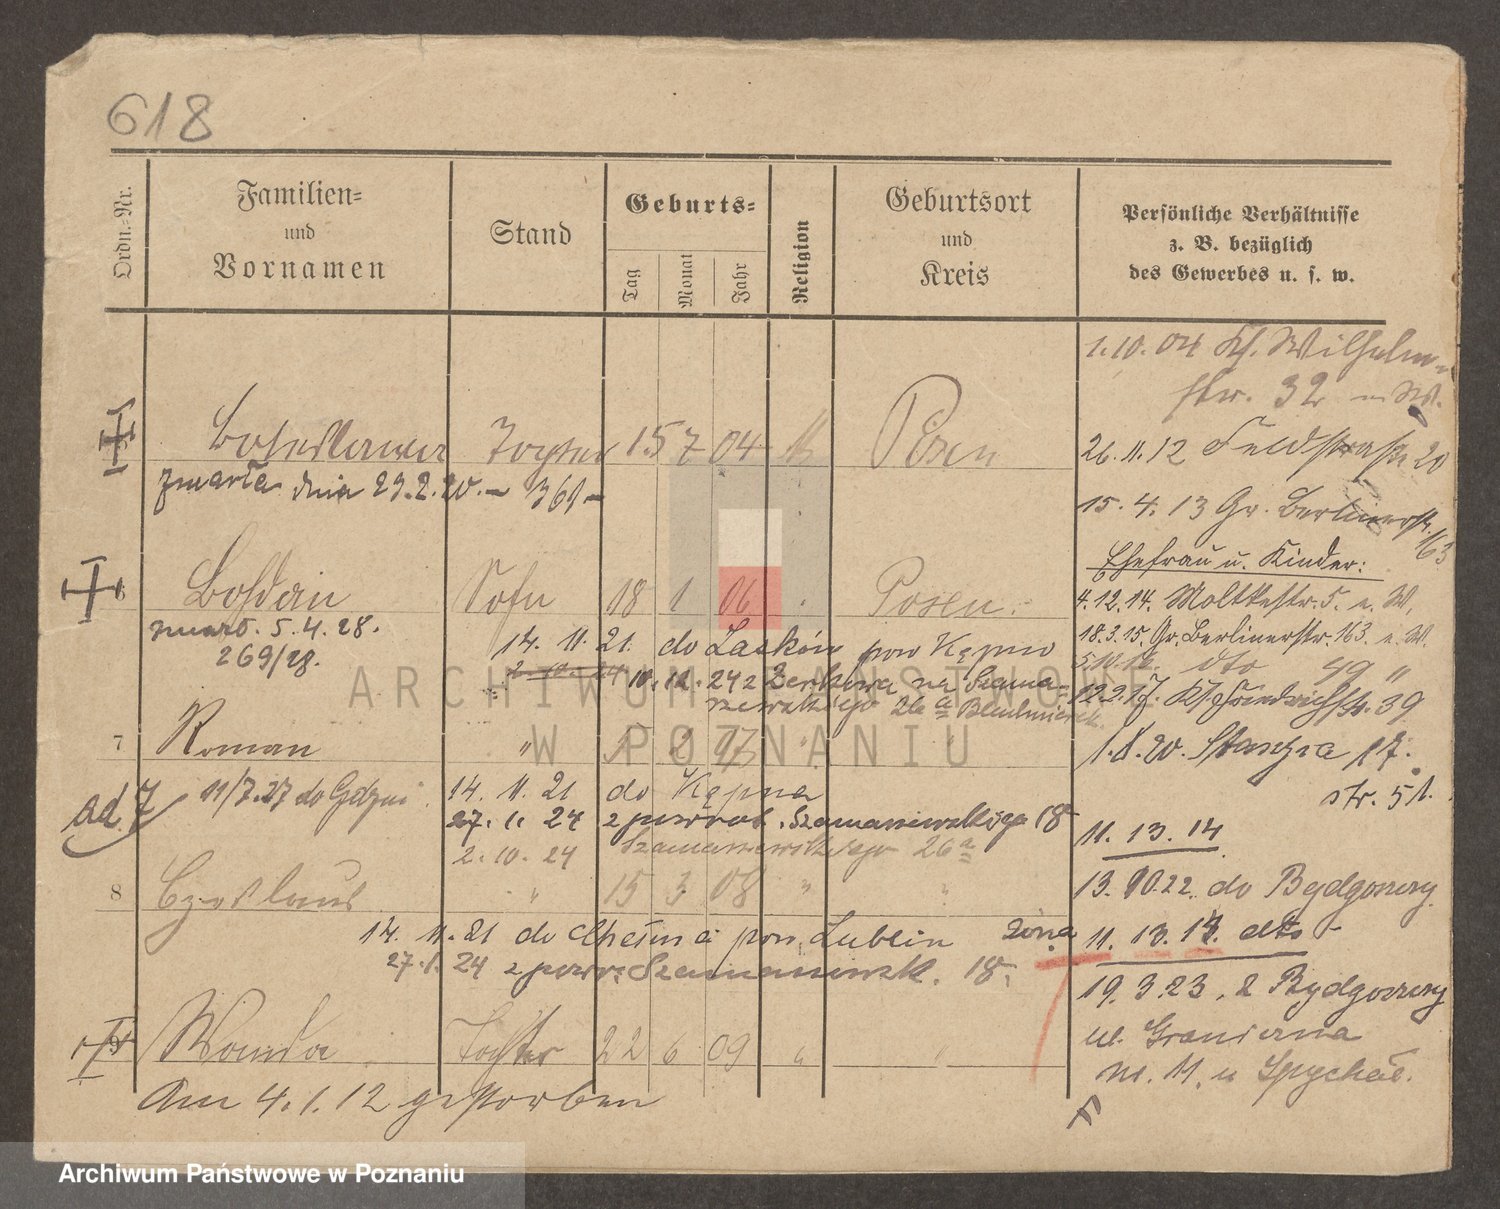 618
Ordn.-Nr.
Familien-
und
Vornamen
Stand
Geburts-
Tag
Monat
Jahr
Religion
Geburtsort
und
Kreis
Persönliche Verhältnisse
z. B. bezüglich
des Gewerbes u. s. w.
1.10.04 Kl. Wilhelm-
str. 32
Tochter 15 7 04 Posen
zmarła dnia 23.2.20.
26.11.12 Feldstraße 20
15.4.13 Gr. Berlinerstr. 163
Ehefrau u. Kinder:
Bohdan Sohn 18 1 06 Posen
zmarł. 5.4.28.
269/28.
4.12.14. Moltkestr. 5. e. W.
18.3.15. Gr. Berlinerstr. 163. e. W.
14. 11. 21. do Lasków pow Kępno
2.10.24 10.12.24 z Żerkowa na Szama-
rzewskiego 26 a
5.10.16. dto 49 "
12.2.17. Friedrichstr. 39
7 Roman " 1 2 07 " "
1.8.20. Staszica 17.
str. 51.
ad. 7 11/7.27 do Gdyni
14. 11. 21 do Kępna
27. 1. 24 z powrot. Szamarzewskiego 18
2. 10. 24 Szamarzewskiego 26 a
11. 13. 14
8 Czesław " 15 3 08 " "
13.10.22. do Bydgoszczy
14. 11. 21 do Chełma pow. Lublin
27.1. 24 z powr. Szamarzewsk. 18.
żona 11. 13. 14. dto
19.3.23. z Bydgoszczy
ul. Graniczna
nr. 11. u Spychał.
9 Wanda Tochter 22 6 09 " "
Am 4.1.12 gestorben
ARCHIWUM PAŃSTWOWE
W POZNANIU
Archiwum Państwowe w Poznaniu